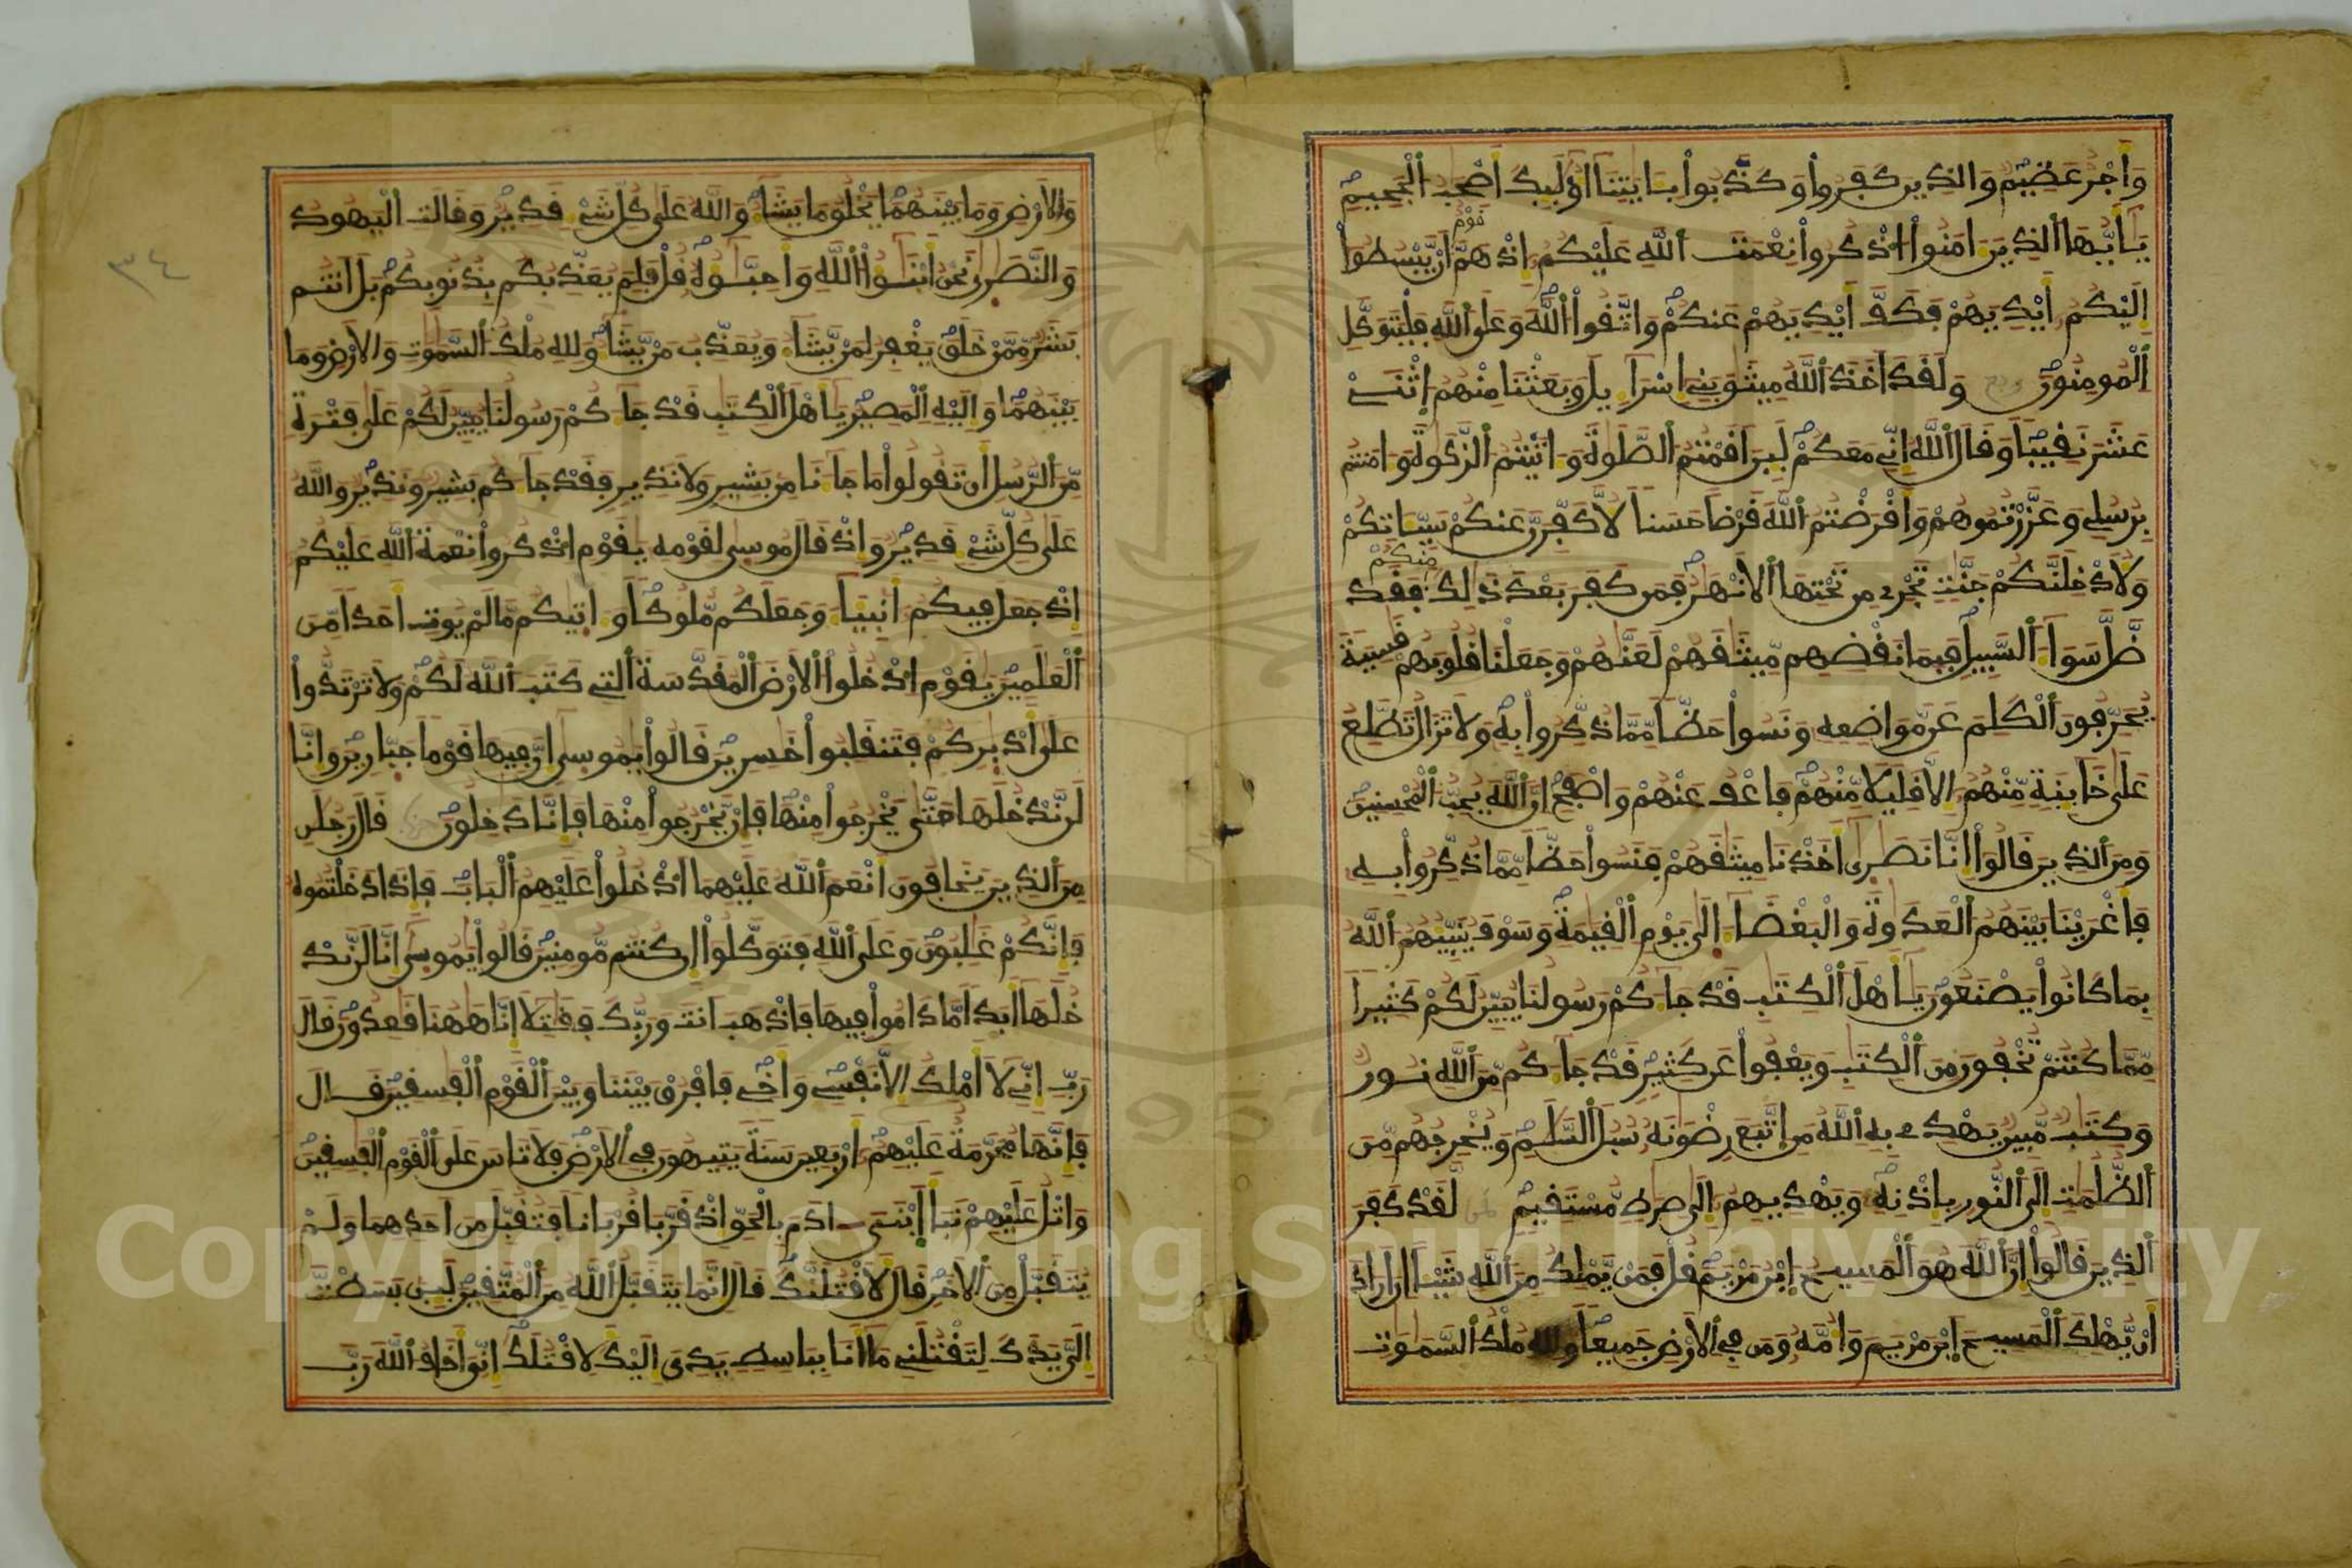 وَأَجْرٌ عَظِيمٌ وَالذِينَ كَفَرُوا وَكَذَّبُوا بِـَٔايَٰتِنَا أُوْلَٰٓئِكَ أَصْحَٰبُ الْجَحِيمِ
يَٰٓأَيُّهَا الذِينَ ءَامَنُوا اذْكُرُوا نِعْمَتَ اللَّهِ عَلَيْكُمْ إِذْ هَمَّ قَوْمٌ أَنْ يَّبْسُطُوا
إِلَيْكُمْ أَيْدِيَهُمْ فَكَفَّ أَيْدِيَهُمْ عَنكُمْ وَاتَّقُوا اللَّهَ وَعَلَى اللَّهِ فَلْيَتَوَكَّلِ
الْمُومِنُونَ وَلَقَدَ اَخَذَ اللَّهُ مِيثَٰقَ بَنِي إِسْرَآءِيلَ وَبَعَثْنَا مِنْهُمُ اثْنَيْ
عَشَرَ نَقِيبًا وَقَالَ اللَّهُ إِنِّي مَعَكُمْ لَئِنَ اَقَمْتُمُ الصَّلَوٰةَ وَءَاتَيْتُمُ الزَّكَوٰةَ وَءَامَنتُم
بِرُسُلِي وَعَزَّرْتُمُوهُمْ وَأَقْرَضْتُمُ اللَّهَ قَرْضًا حَسَنًا لَّأُكَفِّرَنَّ عَنكُمْ سَيِّـَٔاتِكُمْ
وَلَأُدْخِلَنَّكُمْ جَنَّٰتٍ تَجْرِي مِن تَحْتِهَا الْأَنْهَٰرُ فَمَن كَفَرَ بَعْدَ ذَٰلِكَ مِنكُمْ فَقَد
ضَّلَّ سَوَآءَ السَّبِيلِ فَبِمَا نَقْضِهِم مِّيثَٰقَهُمْ لَعَنَّٰهُمْ وَجَعَلْنَا قُلُوبَهُمْ قَٰسِيَةً
يُحَرِّفُونَ الْكَلِمَ عَن مَّوَاضِعِهِ وَنَسُوا حَظًّا مِّمَّا ذُكِّرُوا بِهِ وَلَا تَزَالُ تَطَّلِعُ
عَلَىٰ خَآئِنَةٍ مِّنْهُمُ إِلَّا قَلِيلًا مِّنْهُمْ فَاعْفُ عَنْهُمْ وَاصْفَحْ إِنَّ اللَّهَ يُحِبُّ الْمُحْسِنِينَ
وَمِنَ الذِينَ قَالُوا إِنَّا نَصَٰرَىٰ أَخَذْنَا مِيثَٰقَهُمْ فَنَسُوا حَظًّا مِّمَّا ذُكِّرُوا بِهِ
فَأَغْرَيْنَا بَيْنَهُمُ الْعَدَٰوَةَ وَالْبَغْضَآءَ الَىٰ يَوْمِ الْقِيَٰمَةِ وَسَوْفَ يُنَبِّئُهُمُ اللَّهُ
بِمَا كَانُوا يَصْنَعُونَ يَٰٓأَهْلَ الْكِتَٰبِ قَدْ جَآءَكُمْ رَسُولُنَا يُبَيِّنُ لَكُمْ كَثِيرًا
مِّمَّا كُنتُمْ تُخْفُونَ مِنَ الْكِتَٰبِ وَيَعْفُوا عَن كَثِيرٍ قَدْ جَآءَكُم مِّنَ اللَّهِ نُورٌ
وَكِتَٰبٌ مُّبِينٌ يَهْدِي بِهِ اللَّهُ مَنِ اتَّبَعَ رِضْوَٰنَهُ سُبُلَ السَّلَٰمِ وَيُخْرِجُهُم مِّنَ
الظُّلُمَٰتِ إِلَى النُّورِ بِإِذْنِهِ وَيَهْدِيهِمُ إِلَىٰ صِرَٰطٍ مُّسْتَقِيمٍ لَّقَدْ كَفَرَ
الذِينَ قَالُوا إِنَّ اللَّهَ هُوَ الْمَسِيحُ ابْنُ مَرْيَمَ قُلْ فَمَنْ يَّمْلِكُ مِنَ اللَّهِ شَيْـًٔا إِنَ اَرَادَ
أَنْ يُّهْلِكَ الْمَسِيحَ ابْنَ مَرْيَمَ وَأُمَّهُ وَمَن فِي الْأَرْضِ جَمِيعًا وَلِلَّهِ مُلْكُ السَّمَٰوَٰتِ
وَالْأَرْضِ وَمَا بَيْنَهُمَا يَخْلُقُ مَا يَشَآءُ وَاللَّهُ عَلَىٰ كُلِّ شَيْءٍ قَدِيرٌ وَقَالَتِ الْيَهُودُ
وَالنَّصَٰرَىٰ نَحْنُ أَبْنَٰٓؤُا اللَّهِ وَأَحِبَّٰٓؤُهُ قُلْ فَلِمَ يُعَذِّبُكُم بِذُنُوبِكُم بَلَ اَنتُم
بَشَرٌ مِّمَّنْ خَلَقَ يَغْفِرُ لِمَنْ يَّشَآءُ وَيُعَذِّبُ مَنْ يَّشَآءُ وَلِلَّهِ مُلْكُ السَّمَٰوَٰتِ وَالْأَرْضِ وَمَا
بَيْنَهُمَا وَإِلَيْهِ الْمَصِيرُ يَٰٓأَهْلَ الْكِتَٰبِ قَدْ جَآءَكُمْ رَسُولُنَا يُبَيِّنُ لَكُمْ عَلَىٰ فَتْرَةٍ
مِّنَ الرُّسُلِ أَن تَقُولُوا مَا جَآءَنَا مِن بَشِيرٍ وَلَا نَذِيرٍ فَقَدْ جَآءَكُم بَشِيرٌ وَنَذِيرٌ وَاللَّهُ
عَلَىٰ كُلِّ شَيْءٍ قَدِيرٌ وَإِذْ قَالَ مُوسَىٰ لِقَوْمِهِ يَٰقَوْمِ اذْكُرُوا نِعْمَةَ اللَّهِ عَلَيْكُمُ
إِذْ جَعَلَ فِيكُمُ أَنبِئَآءَ وَجَعَلَكُم مُّلُوكًا وَءَاتَيٰكُم مَّا لَمْ يُوتِ أَحَدًا مِّنَ
الْعَٰلَمِينَ يَٰقَوْمِ ادْخُلُوا الْأَرْضَ الْمُقَدَّسَةَ التِي كَتَبَ اللَّهُ لَكُمْ وَلَا تَرْتَدُّوا
عَلَىٰ أَدْبَٰرِكُمْ فَتَنقَلِبُوا خَٰسِرِينَ قَالُوا يَٰمُوسَىٰ إِنَّ فِيهَا قَوْمًا جَبَّارِينَ وَإِنَّا
لَن نَّدْخُلَهَا حَتَّىٰ يَخْرُجُوا مِنْهَا فَإِنْ يَّخْرُجُوا مِنْهَا فَإِنَّا دَٰخِلُونَ قَالَ رَجُلَٰنِ
مِنَ الذِينَ يَخَافُونَ أَنْعَمَ اللَّهُ عَلَيْهِمَا ادْخُلُوا عَلَيْهِمُ الْبَابَ فَإِذَا دَخَلْتُمُوهُ
فَإِنَّكُمْ غَٰلِبُونَ وَعَلَى اللَّهِ فَتَوَكَّلُوا إِن كُنتُم مُّومِنِينَ قَالُوا يَٰمُوسَىٰ إِنَّا لَن نَّدْ
خُلَهَا أَبَدًا مَّا دَامُوا فِيهَا فَاذْهَبَ اَنتَ وَرَبُّكَ فَقَٰتِلَا إِنَّا هَٰهُنَا قَٰعِدُونَ قَالَ
رَبِّ إِنِّي لَا أَمْلِكُ إِلَّا نَفْسِي وَأَخِي فَافْرُقْ بَيْنَنَا وَبَيْنَ الْقَوْمِ الْفَٰسِقِينَ قَالَ
فَإِنَّهَا مُحَرَّمَةٌ عَلَيْهِمُ أَرْبَعِينَ سَنَةً يَتِيهُونَ فِي الْأَرْضِ فَلَا تَاسَ عَلَى الْقَوْمِ الْفَٰسِقِينَ
وَاتْلُ عَلَيْهِمْ نَبَأَ ابْنَيَ ءَادَمَ بِالْحَقِّ إِذْ قَرَّبَا قُرْبَانًا فَتُقُبِّلَ مِنَ أَحَدِهِمَا وَلَمْ
يُتَقَبَّلْ مِنَ الْأَخَرِ قَالَ لَأَقْتُلَنَّكَ قَالَ إِنَّمَا يَتَقَبَّلُ اللَّهُ مِنَ الْمُتَّقِينَ لَئِن بَسَطتَّ
إِلَيَّ يَدَكَ لِتَقْتُلَنِي مَا أَنَا بِبَاسِطٍ يَدِيَ إِلَيْكَ لِأَقْتُلَكَ إِنِّيَ أَخَافُ اللَّهَ رَبَّ
٣٤
Copyright © King Saud University
1957